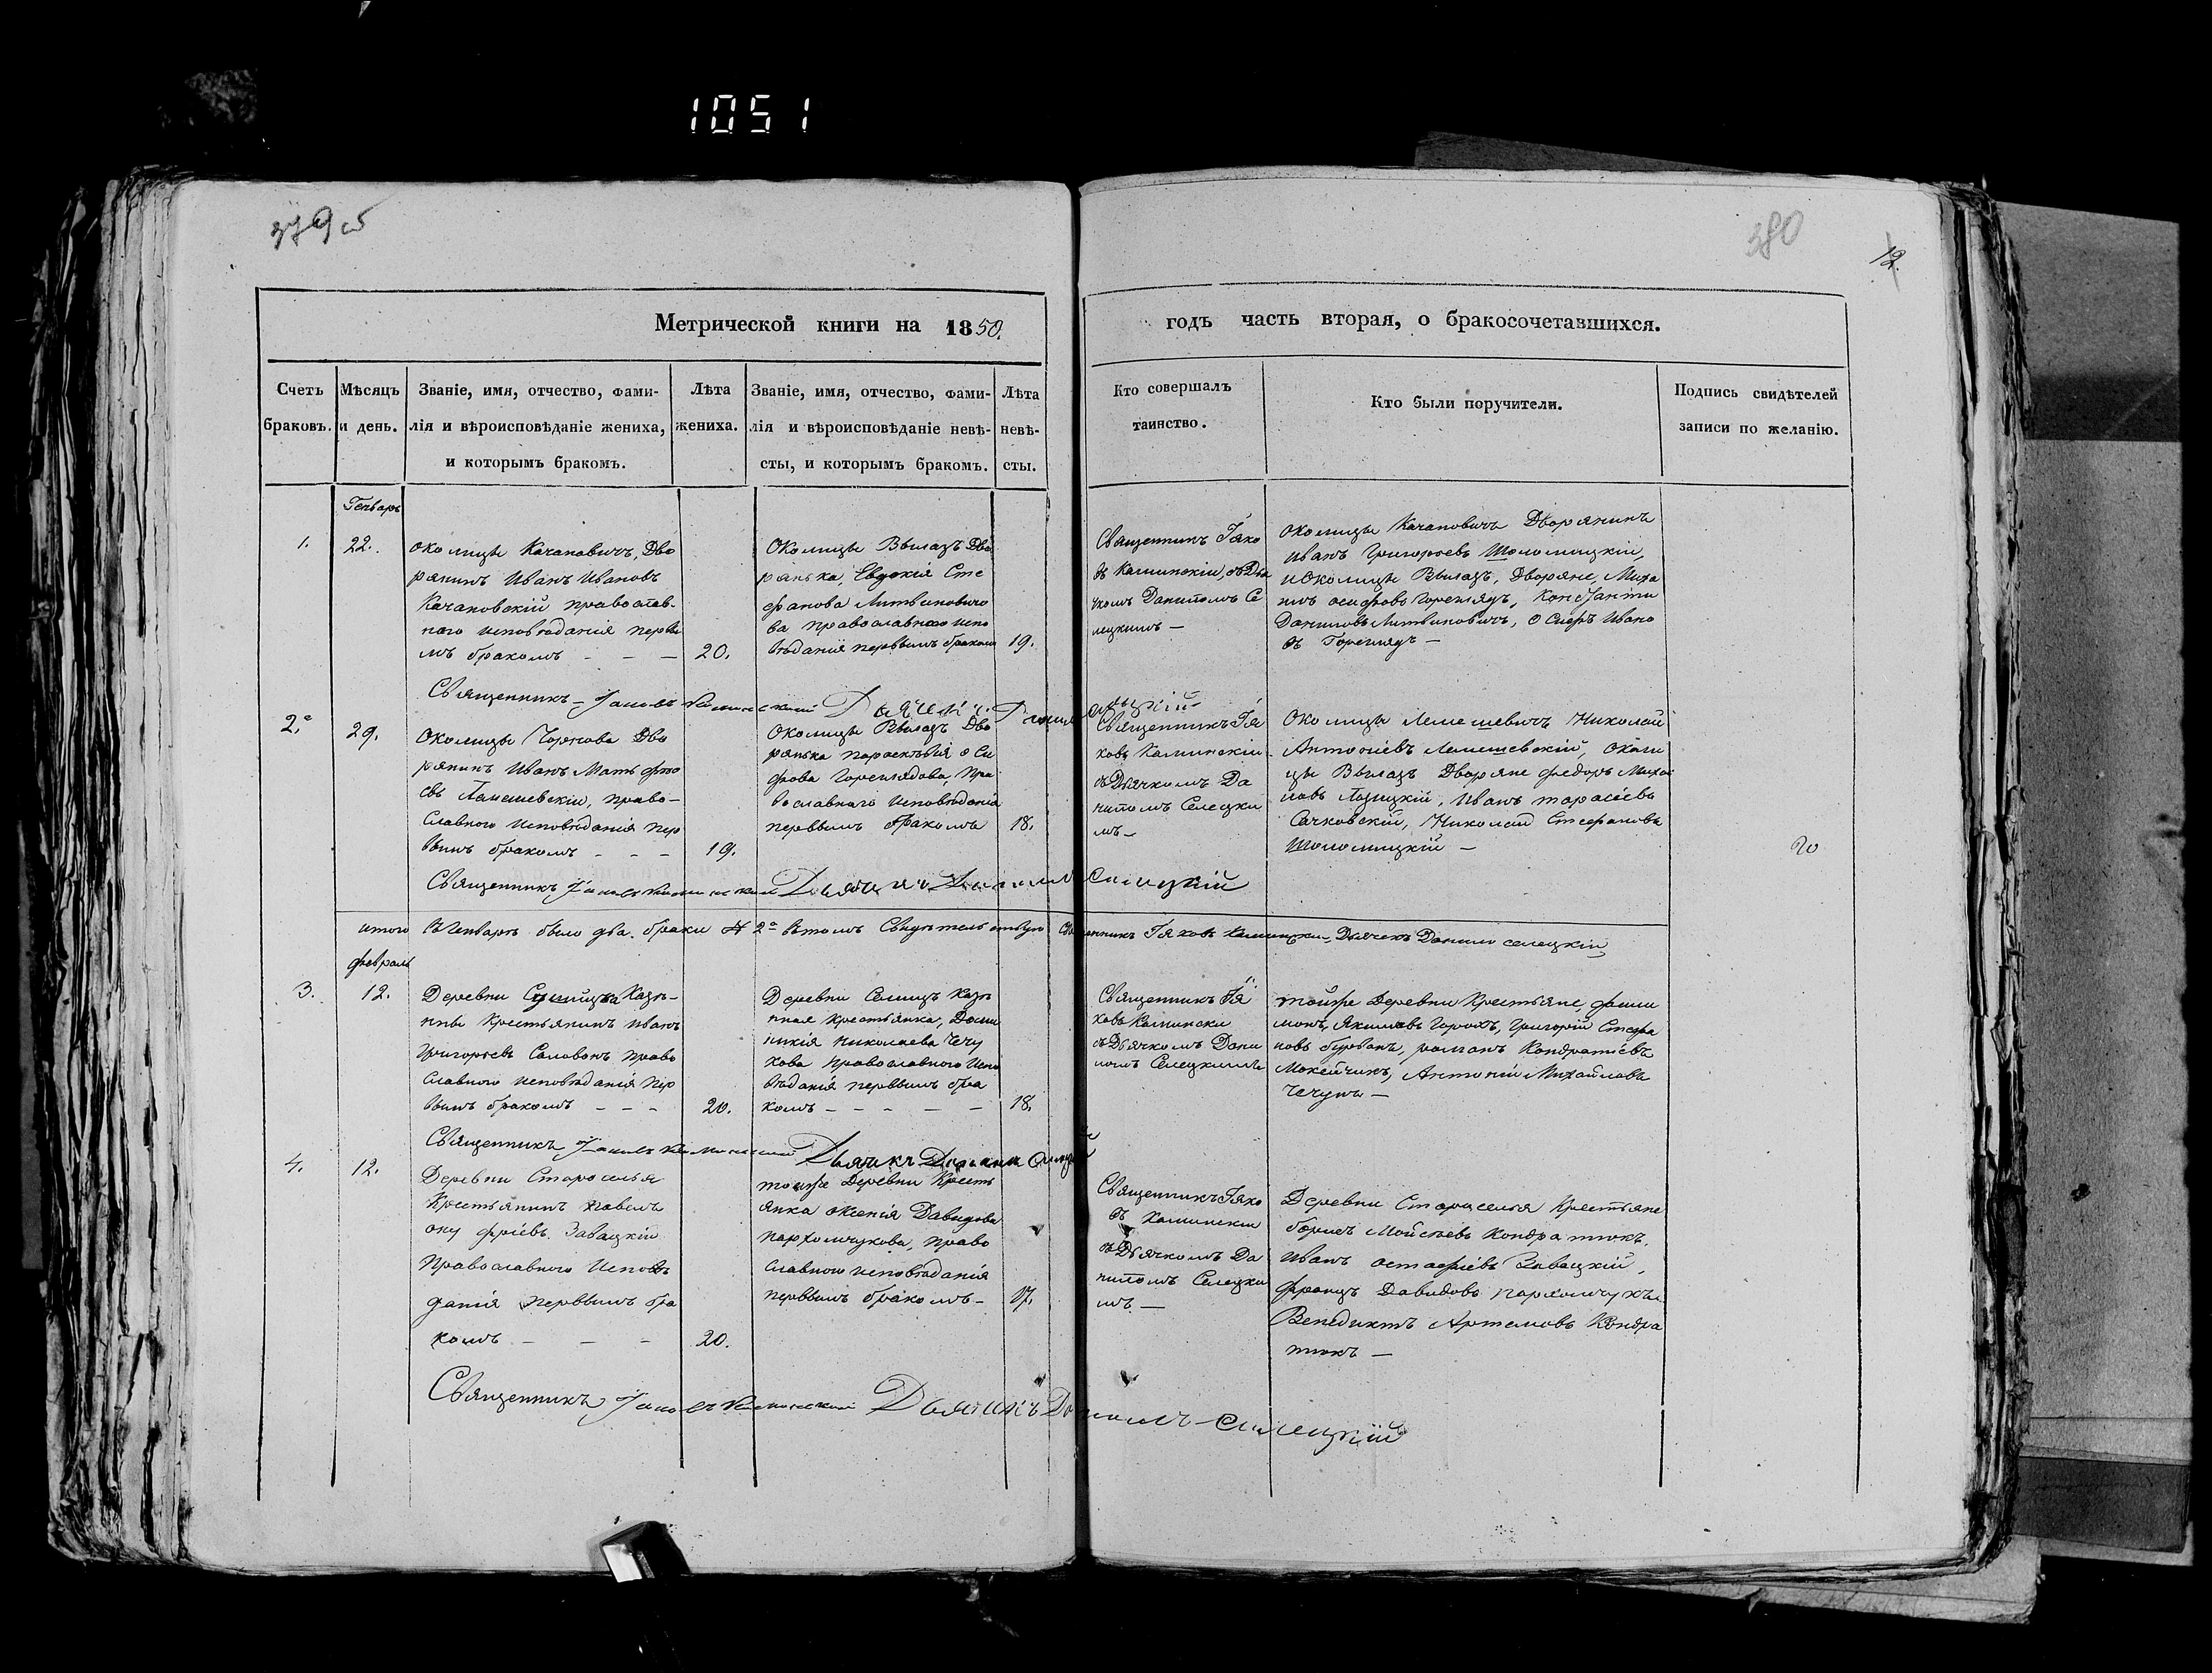 1051
379 об
380
12.
Метрической книги на 1850.
годъ часть вторая, о бракосочетавшихся.
Счетъ браковъ.
Мѣсяцъ и день.
Званіе, имя, отчество, фами-
лія и вѣроисповѣданіе жениха,
и которымъ бракомъ.
Лѣта
жениха.
Званіе, имя, отчество, фами-
лія и вѣроисповѣданіе невѣ-
сты, и которымъ бракомъ.
Лѣта
невѣ-
сты.
Кто совершалъ
таинство.
Кто были поручители.
Подпись свидѣтелей
записи по желанію.
Генварь
1.
22.
Околицы Качановичъ, Дво
рянинъ Иванъ Ивановъ
Качановскій православ-
наго исповѣданія первы
мъ бракомъ - - -
20.
Околицы Вылазъ Дво
рянка, Евдокія Сте
фанова Литвиновичо
ва православнаго испо
вѣданія первымъ бракомъ
19.
Священникъ Іако
въ Каминскій, съ Дья
чкомъ Даниломъ Се
лецкимъ —
Околицы Качановичъ Дворянинъ
Иванъ Григорьевъ Шоломицкій,
и Околицы Вылазъ, Дворяне, Миха
илъ Осифовъ Горегляд, Константи
Даниловъ Литвиновичъ, Осифъ Ивано
въ Горегляд —
Священникъ Іаковъ Каминскій Дьячекъ Данило Селецкій
2.
29.
Околицы Чернова Дво
рянинъ Иванъ Матфѣе
въ Лемешевскій, право-
славнаго исповѣданія пер
вымъ бракомъ - - -
19.
Околицы Вылазъ Дво
рянка Параскѣвія Оси
фова Гореглядова, Пра
вославнаго исповѣданія
первымъ бракомъ
18.
Священникъ Іа
ковъ Каминскій
съ Дьячкомъ Да
ниломъ Селецки
мъ —
Околицы Лемешевичъ Николай
Антоніевъ Лемешевскій, Околи
цы Вылазъ Дворяне Федоръ Михаи
ловъ Лозицкій, Иванъ Тарасіевъ
Сачковскій, Николай Стефановъ
Шоломицкій —
20
Священникъ Іаковъ Каминскій Дьячекъ Данило Селецкій
итого въ Генварѣ было два браки 2 въ томъ Свидѣтельствую Священникъ Іаковъ Каминскій, Дьячекъ Данило Селецкій
февраль
3.
12.
Деревни Казен-
ный Крестьянинъ Иванъ
Григорьевъ Саловонъ Право
славнаго исповѣданія Пер
вымъ бракомъ - - -
20.
Деревни Селищъ Казен
ная Крестьянка, Доми
никія Николаева Чечу
кова Православнаго Испо
вѣданія первымъ бра
комъ - - - - -
18.
Священникъ Іа
ковъ Каминскій
съ Дьячкомъ Дани
ломъ Селецкимъ
тойже Деревни Крестьяне, Фили
монъ, Якимовъ Горохъ, Григорій Стефа
новъ Бурванъ, Романъ Кондратіевъ
Мокейчикъ, Антоній Михайловъ
Чечукъ —
Священникъ Іаковъ Каминскій Дьячекъ Данило Селецкій
4.
12.
Деревни Староселья
Крестьянинъ Павелъ
Онуфріевъ Завацкій
Православнаго Исповѣ
данія первымъ бра
комъ - - -
20.
тойже Деревни Кресть
янка Оксенія Давидова
пархомчукова, право
славнаго исповѣданія
первымъ бракомъ -
17.
Священникъ Іако
въ Каминскій
съ Дьячкомъ Да
ниломъ Селецки
мъ —
Деревни Староселья Крестьяне
борисъ Мойсѣевъ Кондратюкъ,
Иванъ Остафіевъ Завацкій,
Францъ Давидовъ Пархомчукъ,
Венедиктъ Артемовъ Кондра
тюкъ —
Священникъ Іаковъ Каминскій Дьячекъ Данилъ Селецкій